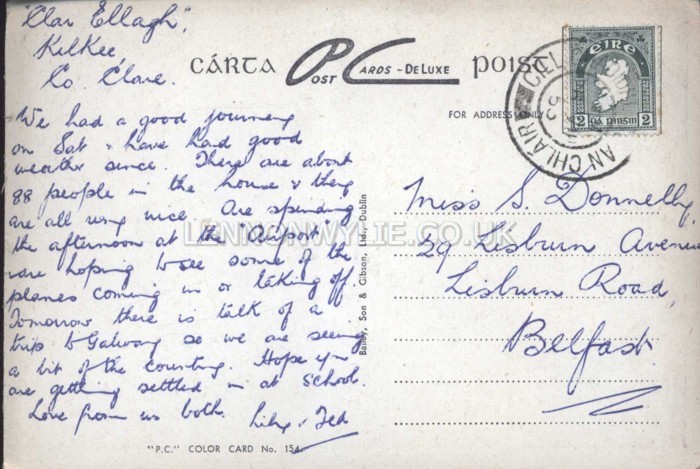 "Clar Ellagh",
Kilkee,
Co Clare.
We had a good journey
on Sat & have had good
weather since. There are about
88 people in the house & they
are all very nice. Are spending
the afternoon at the Airport &
are hoping to see some of the
planes coming in or taking off.
Tomorrow there is talk of a
trip to Galway so we are seeing
a bit of the country. Hope you
are getting settled in at school.
Love from us both.
&
Ted
"P.C." COLOR CARD No. 154.
CÁRTA
POST CARDS - DELUXE
POIST
FOR ADDRESS ONLY
Bailey, Son & Gibson, Ltd., Dublin
ÉIRE
2
2
CILL
AN CHLÁIR
Miss S. Donnelly,
29 Lisburn Avenue
Lisburn Road,
Belfast.
LENNONWYLIE.CO.UK